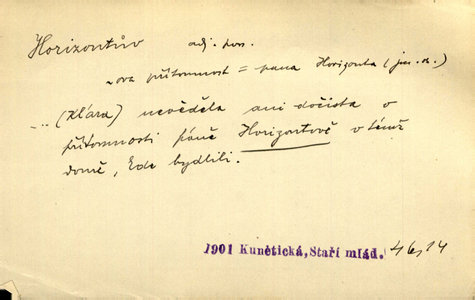 Horizontův adj. poss.
~ova přítomnost = pana Horizonta (jm. o.)
... (Klára) nevěděla ani dočista o
přítomnosti páně Horizontově v témž
domě, kde bydlili.
1901 Kunětická, Staří mlád. 46, 14